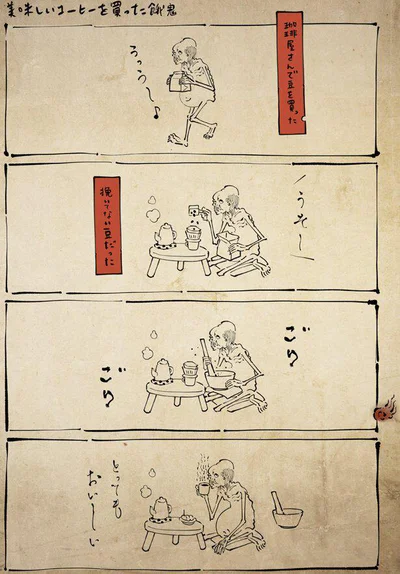 美味しいコーヒーを買った餓鬼
珈琲屋さんで豆を買った
うっうし〜♪
うそ〜し
挽いてない豆だった
ごり
ごり
とっても
おいし〜い